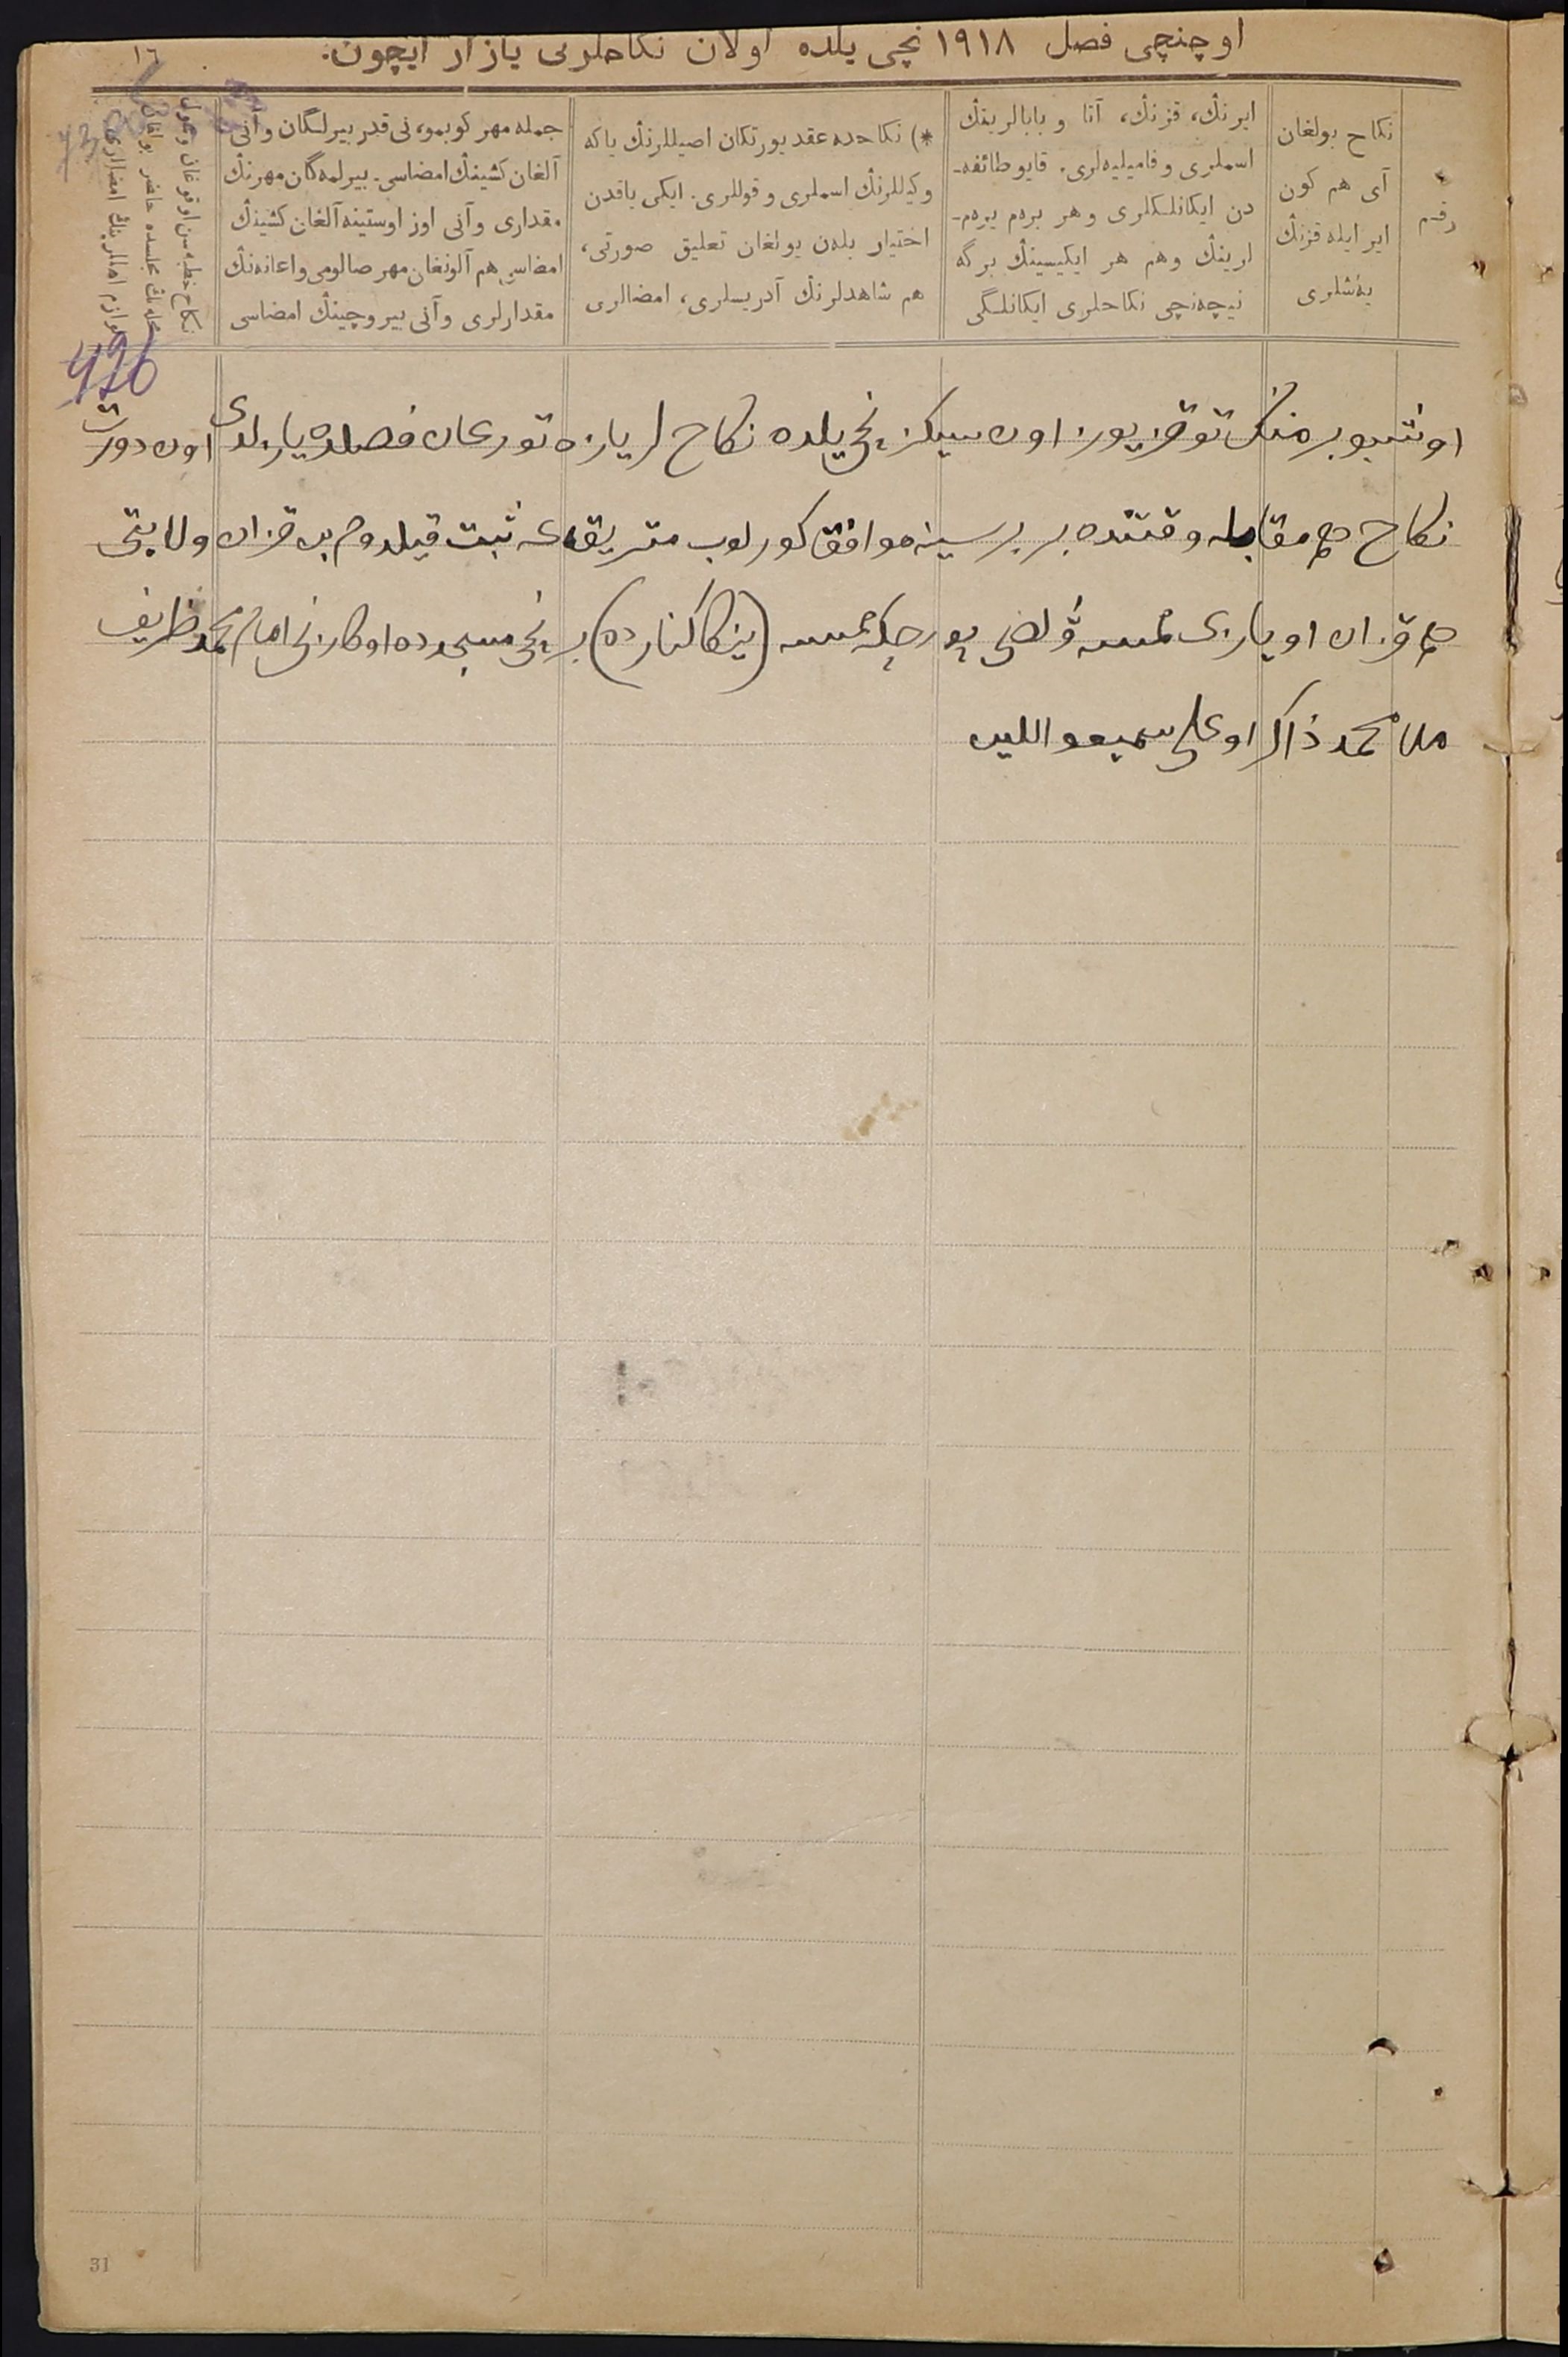 اوچنچی فصل ١٩١٨ نچی یلده اولان نکاحلرنی یازار ایچون.
١٦
رقم
نکاح بولغان
آی هم کون
ایر ایله قزنڭ
یەشلری
ایرنڭ، قزنڭ، آتا و بابالرینڭ
اسملری و فامیلیەلری. قایو طائفه-
دن ایکانلکلری و هر برەم یرەم-
لرینڭ وهم هر ایکیسینڭ برگه
نیچەنچی نکاحلری ایکانلگی
*) نکاحده عقد یورتکان اصیللرنڭ یاکه
وکیللرنڭ اسملری و قوللری. ایکی یاقدن
اختیار بلەن بولغان تعلیق صورتی،
هم شاهدلرنڭ آدریسلری، امضالری
جمله مهر کوبمو، نی قدر بیرلگان و آنی
آلغان کشینڭ امضاسی. بیرلمەگان مهرنڭ
مقداری و آنی اوز اوستینه آلغان کشینڭ
امضاسی هم آلونغان مهر صالومی و اعانەنڭ
مقدارلری و آنی بیروچینڭ امضاسی
نکاح خطبەسن اوقوغان و
محلەنڭ مجلسده حاضر بولغان
426
اوشبو بر منڭ توقز یوز اون سیکزنچی یلده نکاح لر یازه تورغان فصلده یازلدی اون دورت
نکاح هم مقابله وقتنده بر برسینه موافق کورلوب متریقەغه ثبت قیلدوم من قزان ولایتی
هم قزان اویازی وُلصی (ینکا کنارده) برنچی مسجدده اوکازنی امام محمد ظریف
ملا محمد ذاکر اوغلی سمیعواللین
31